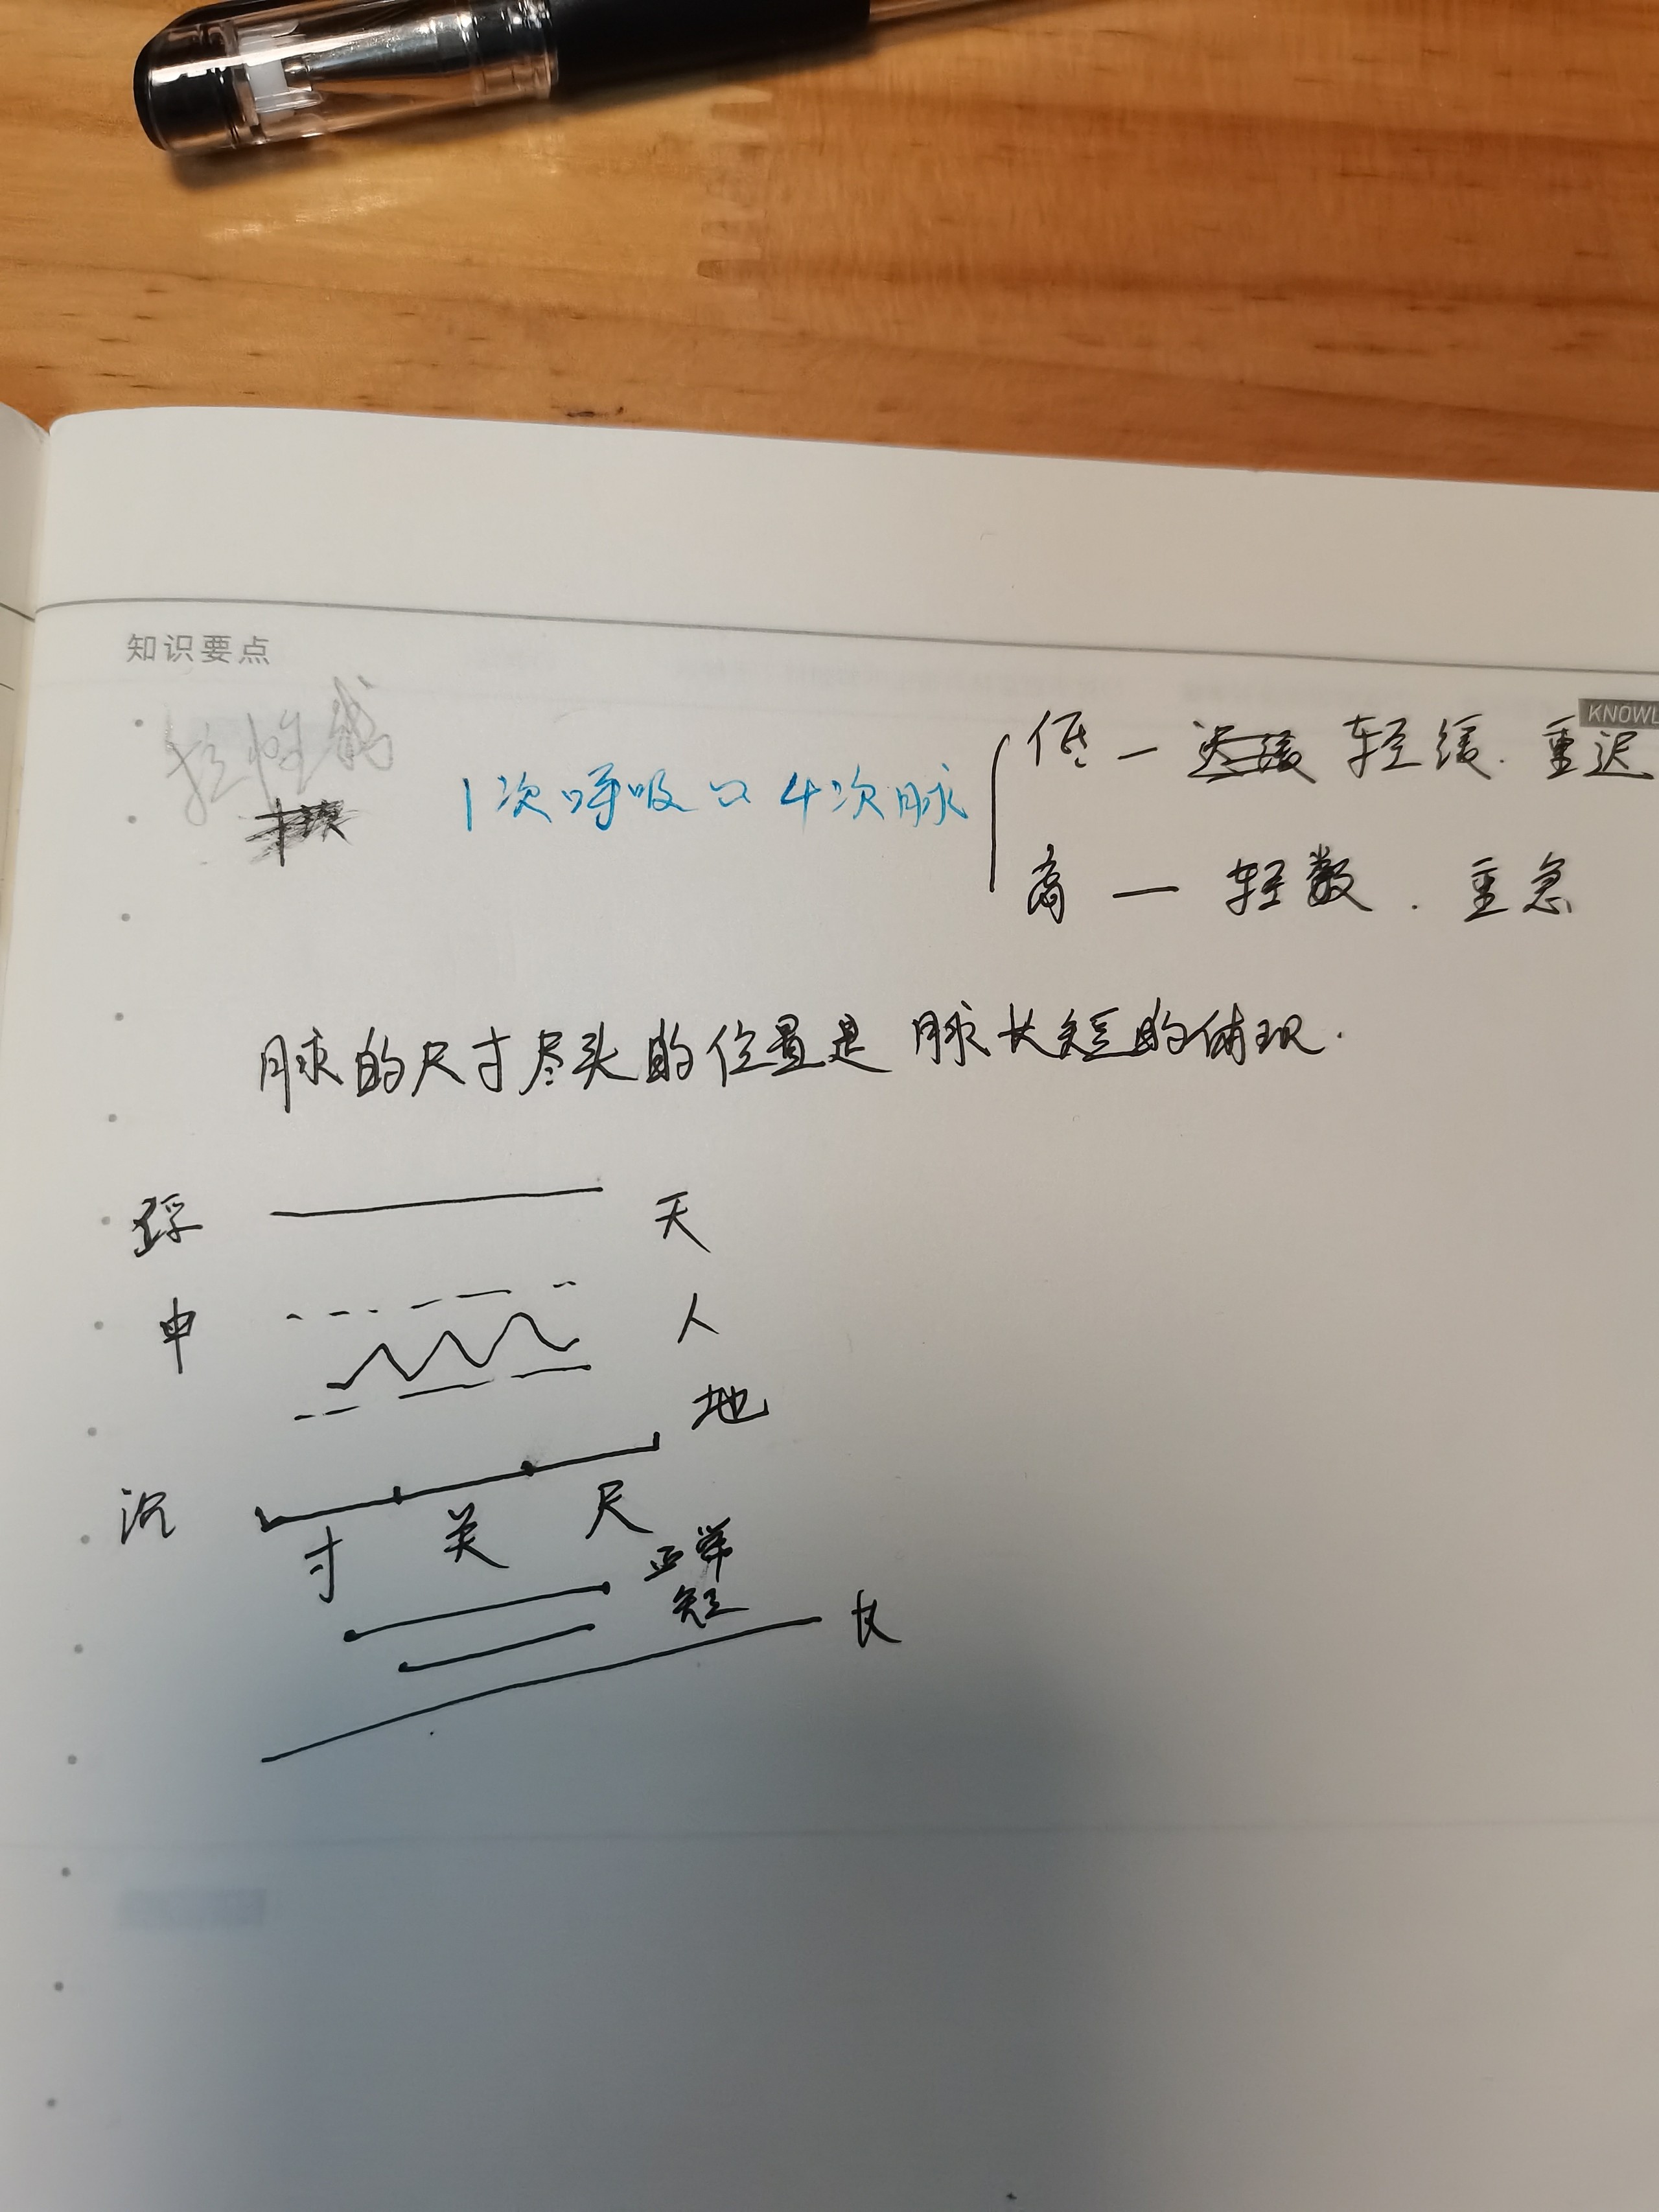 知识要点
KNOWL
低 — 轻缓. 重迟
1次呼吸 4次脉
高 — 轻数. 重急
脉的尺寸尽头的位置是脉长短的体现.
浮 天
中 人
地
沉
寸 关 尺
正常
短
长